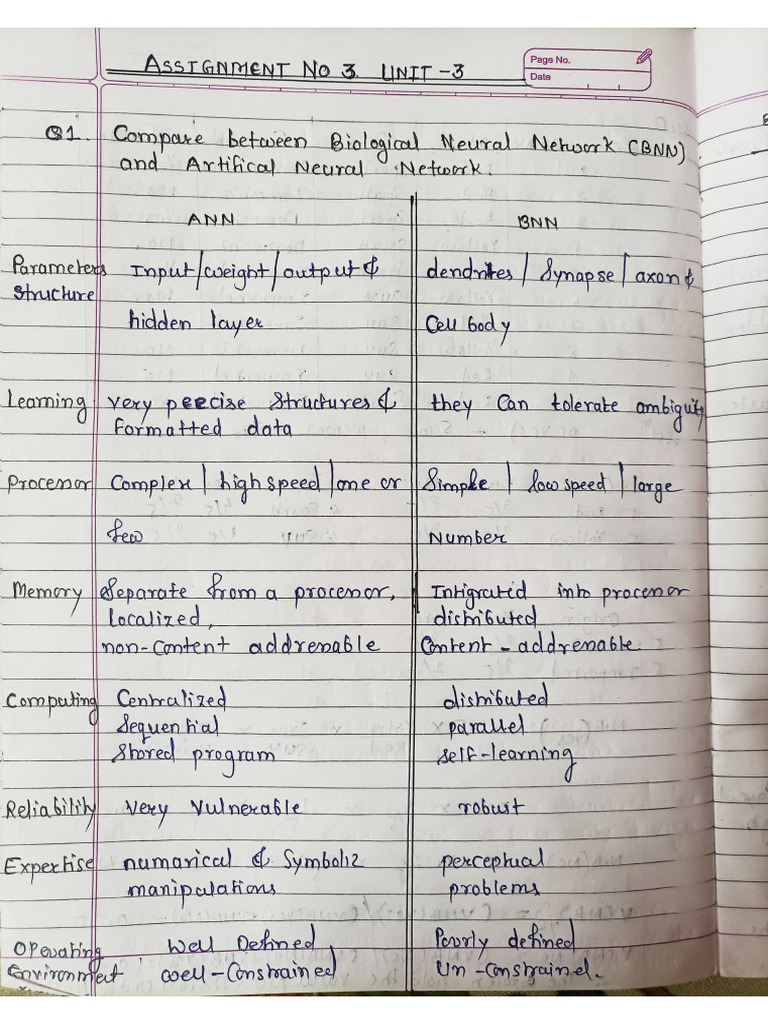 ASSIGNMENT NO 3. UNIT -3
Page No.
Date
Q1. Compare between Biological Neural Network (BNN)
and Artifical Neural Network.
ANN BNN
Parameters Input/weight/output & dendrites / Synapse / axon &
Structure
hidden layer Cell body
Learning very precise structures & they Can tolerate ambiguity
formatted data
Processor Complex / high speed / one or Simple / low speed / large
few Number
Memory Separate from a processor, Intigrated into processor
localized, distributed
non-content addressable Content - addressable
Computing Centralized distributed
Sequential parallel
Stored program self-learning
Reliability Very Vulnerable robust
Expertise numarical & Symboliz perceptual
manipulations problems
Operating Well Defined Poorly defined
Environment well-Constrained Un-Constrained.